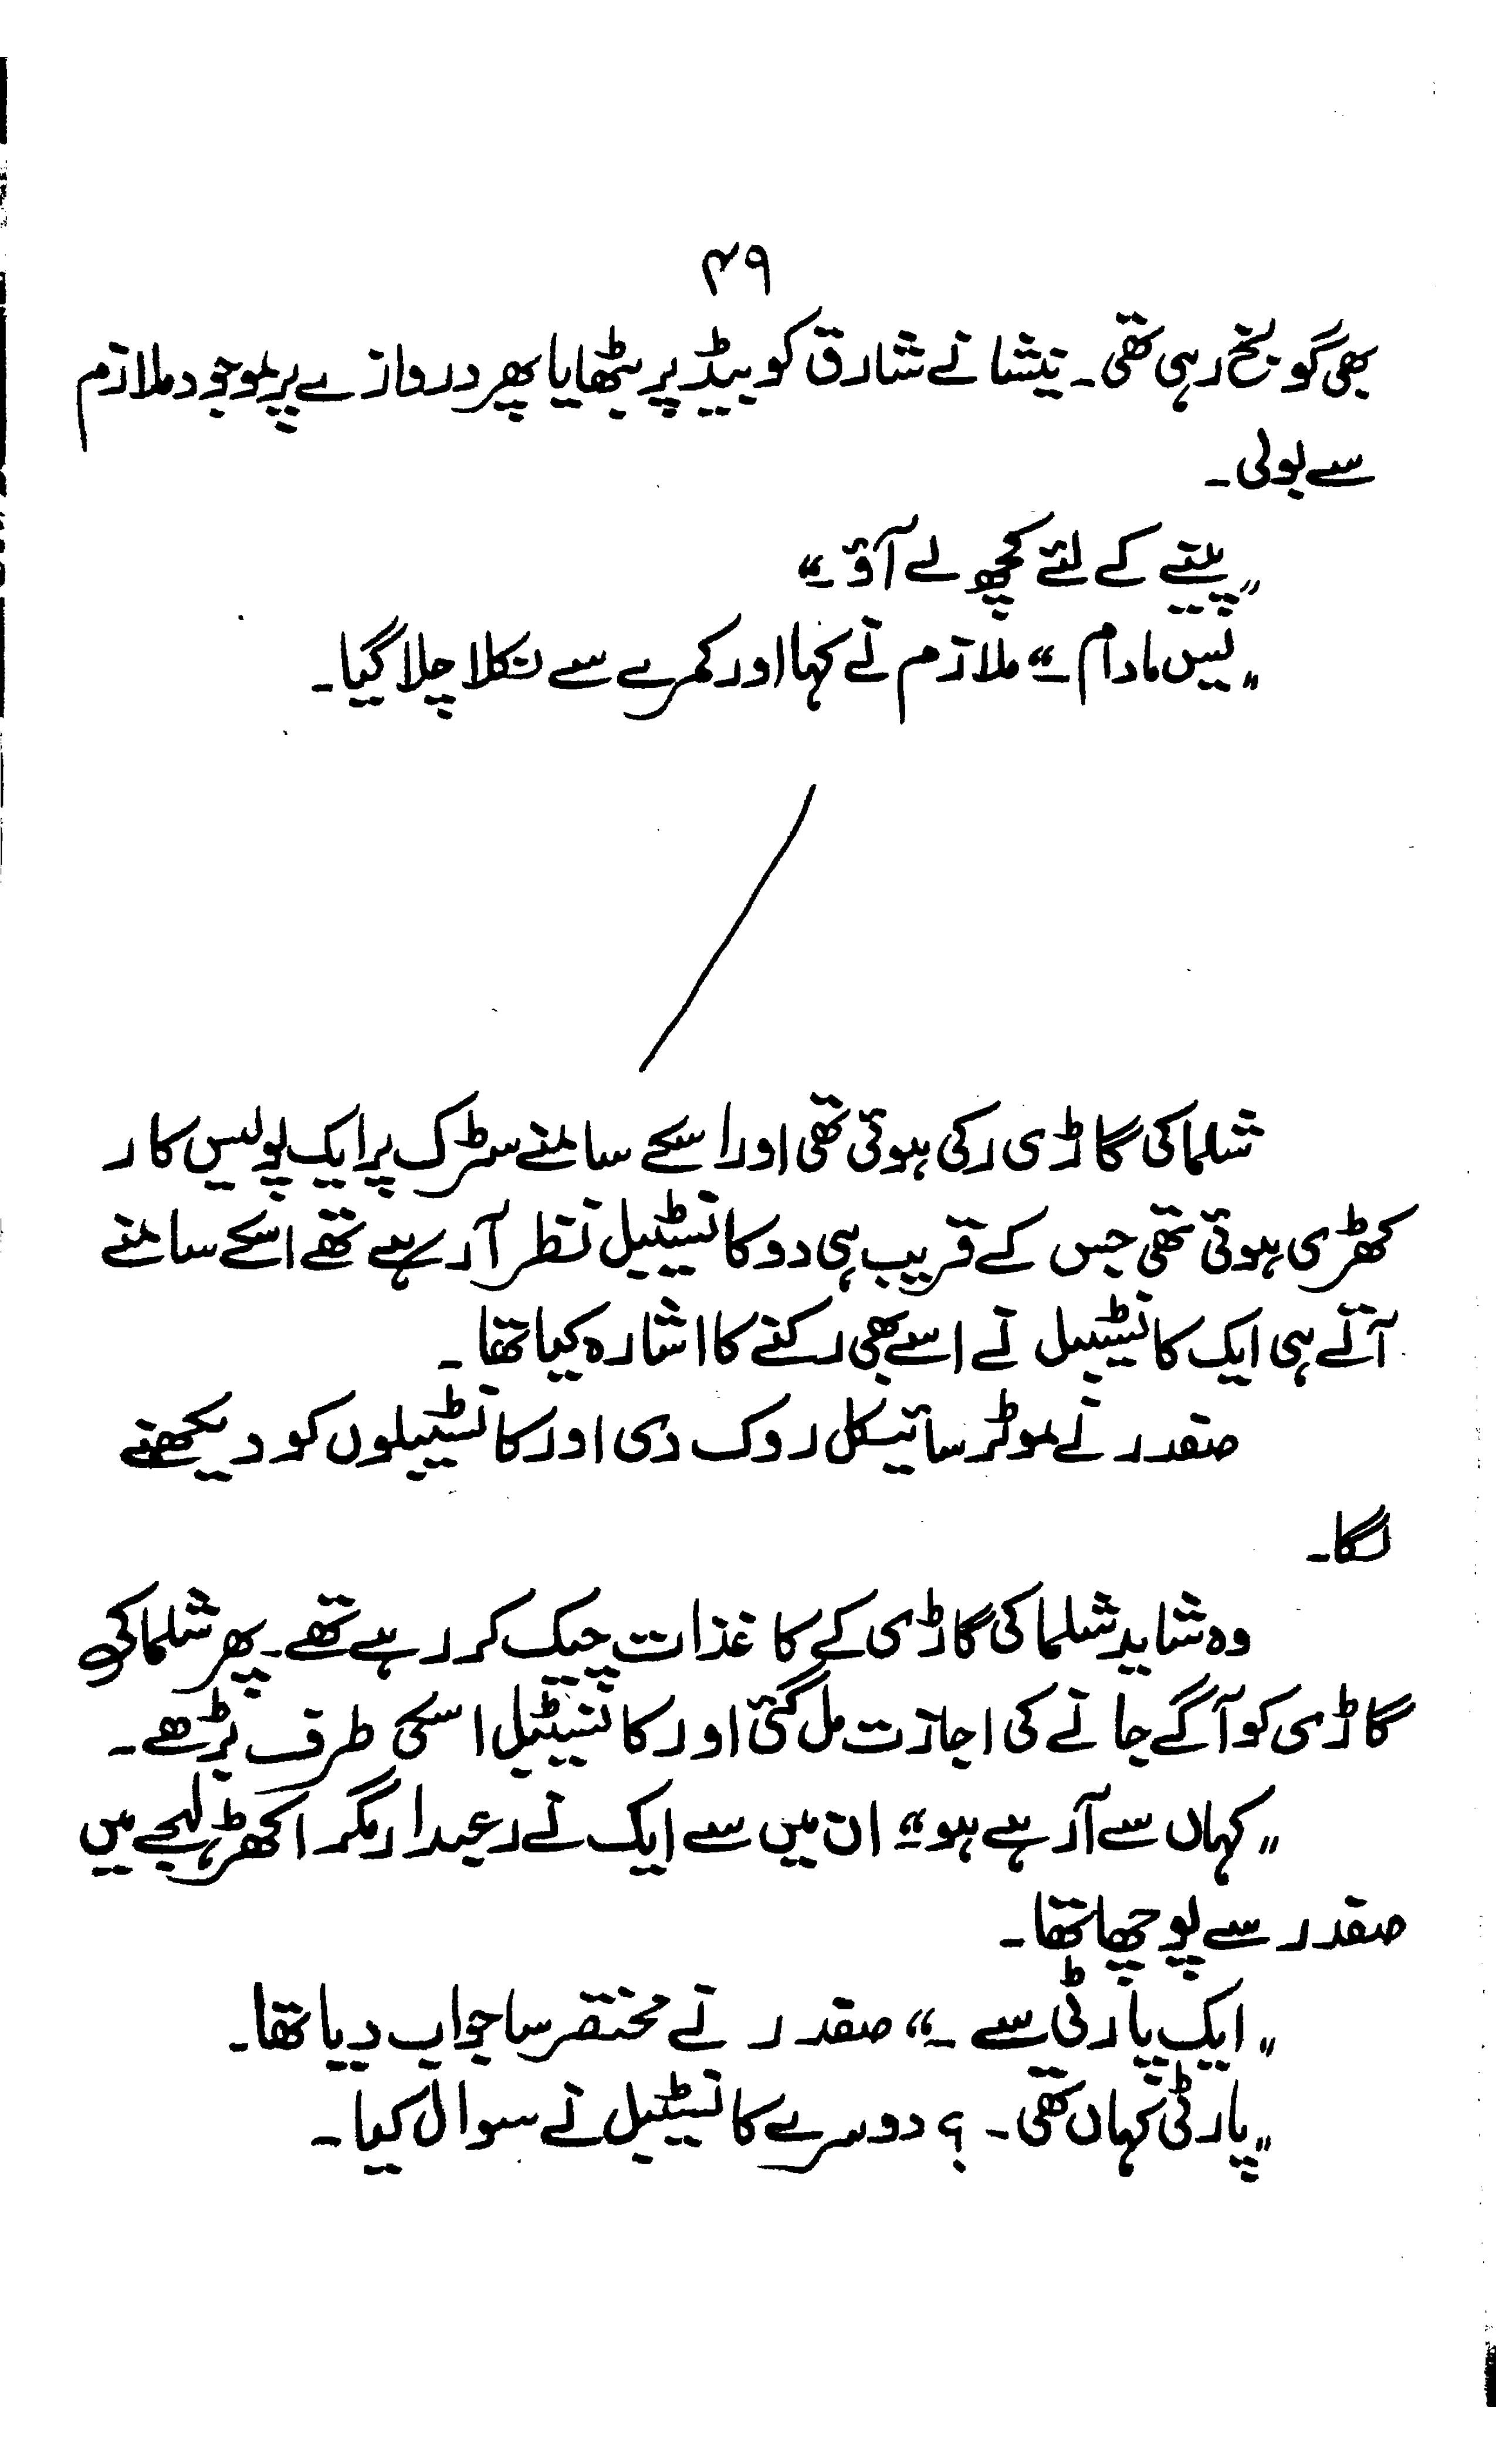 ۴۹
بھی گونج رہی تھی۔ نیشا نے شارق کو بیڈ پر بٹھایا پھر دروازے پر موجود ملازم
سے بولی۔
"پینے کے لئے کچھ لے آؤ۔"
"یس مادام۔" ملازم نے کہا اور کمرے سے نکلا چلا گیا۔
شلما کی گاڑی رکی ہوئی تھی اور اسکے سامنے سڑک پر ایک پولیس کار
کھڑی ہوئی تھی جس کے قریب ہی دو کانسٹیبل نظر آ رہے تھے اسکے سامنے
آتے ہی ایک کانسٹیبل نے اسے بھی رکنے کا اشارہ کیا تھا۔
صفدر نے موٹر سائیکل روک دی اور کانسٹیبلوں کو دیکھنے
لگا۔
وہ شاید شلما کی گاڑی کے کاغذات چیک کر رہے تھے۔ پھر شلما کی
گاڑی کو آگے جانے کی اجازت مل گئی اور کانسٹیبل اسکی طرف بڑھے۔
"کہاں سے آ رہے ہو۔" ان میں سے ایک نے رعبدار مگر اکھڑ لہجے میں
صفدر سے پوچھا تھا۔
"ایک پارٹی سے۔" صفدر نے مختصر سا جواب دیا تھا۔
"پارٹی کہاں تھی۔؟ دوسرے کانسٹیبل نے سوال کیا۔